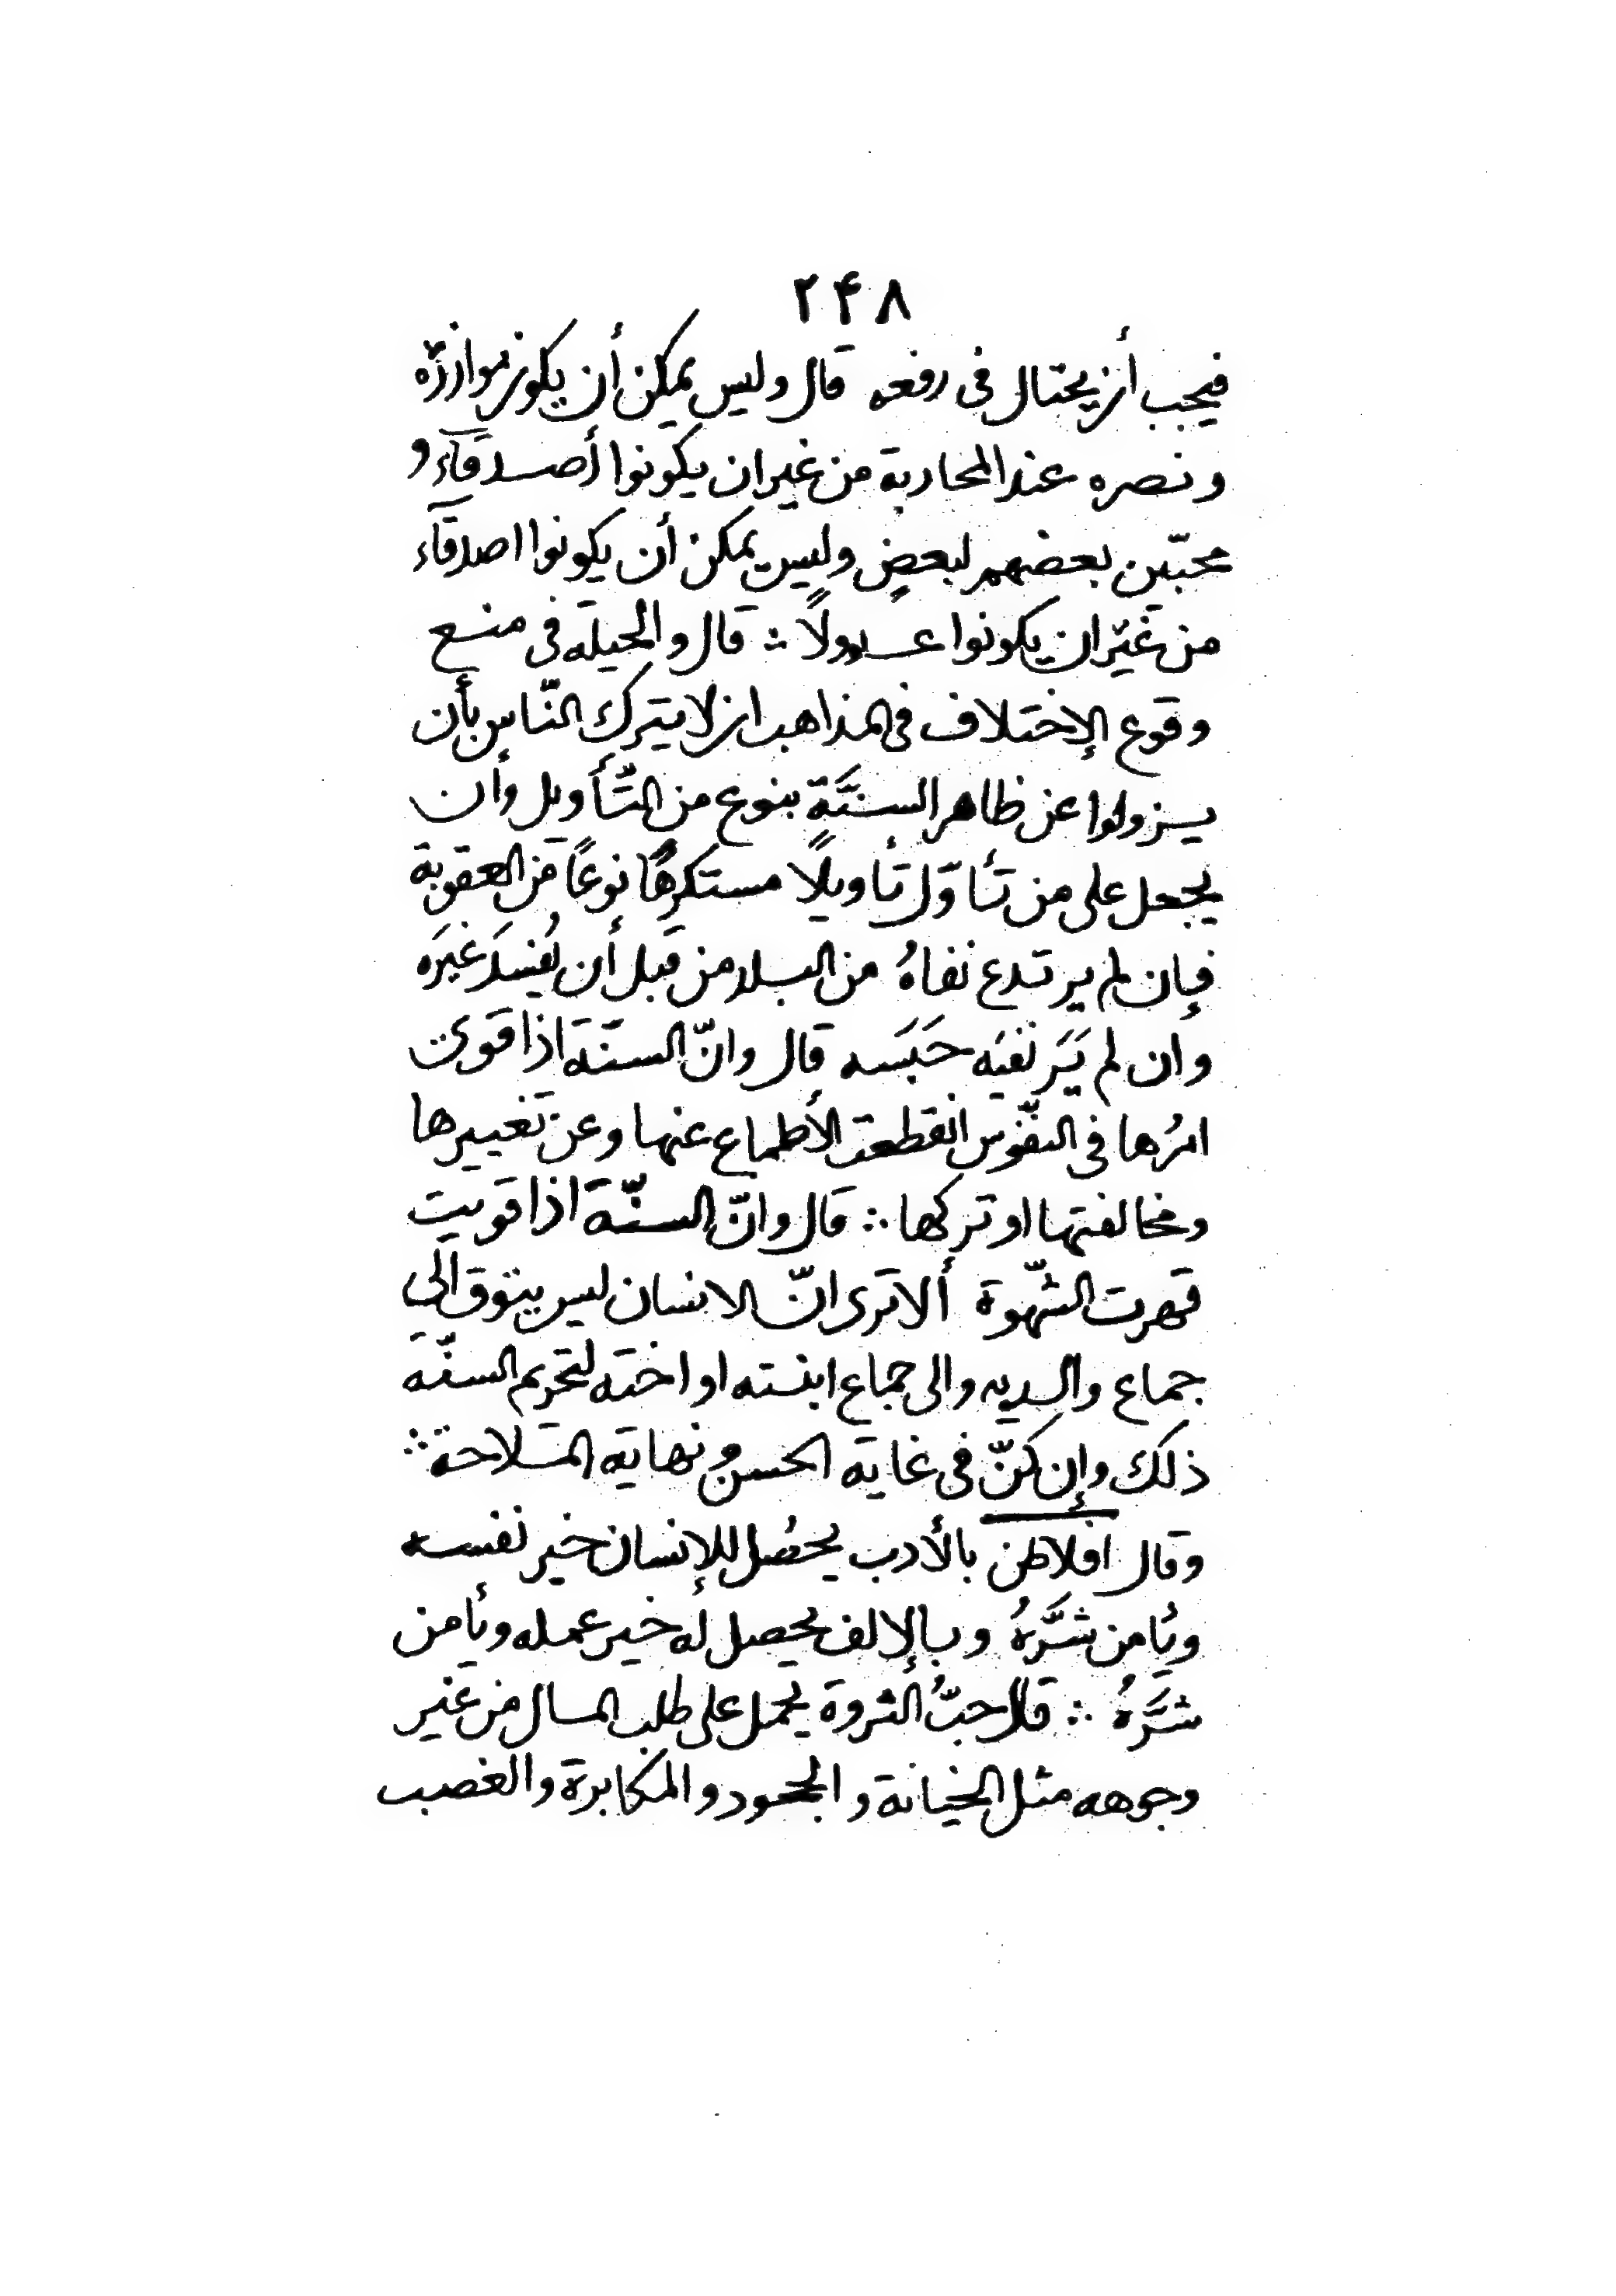 ۲۴۸
فيجب أن يحتال فى رفعه قال وليس يمكن أن يكون موازرة
ونصره عند المحاربة من غير ان يكونوا أصدقآء و
محبّين بعضهم لبعضٍ وليس يمكن أن يكونوا اصدقآء
من غير ان يكونوا عدولاً ∴ قال والحيلة فى منع
وقوع الإختلاف فى المذاهب ان لا يترك النّاس بأن
يزولوا عن ظاهر السنَّةٍ بنوع من التّأويل وأن
يجعل على من تأوّل تأويلًا مستكرهًا نوعًا من العقوبة
فإن لم يرتدع نفاهُ من البلد من قبل أن يُفسدَ غيرَه
وان لم يَرَ نفيَه حَبَسه قال وانّ السنّة اذا قوى
امرُها فى النفّوس انقطعت الأطماع عنها وعن تغييرها
ومخالفتها او تركها ∴ قال وانّ السنّة اذا قويت
قهرت الشّهوة ألا ترى انّ الانسان ليس يتوق الى
جماع والديه والى جماع ابنته او اخته لتحريم السنّة
ذلك وإن كنّ فى غاية الحسن ونهاية الملاحة ∴
وقال افلاطن بالأدب يحصُل للإنسان خير نفسه
ويأمن شرَّهُ وبالإلف يحصل له خير عمله ويأمن
شرَّهُ ∴ قال حبُّ الثروة يحمل على طلب المال من غير
وجوهه مثل الخيانة والجحود والمكابرة والغصب